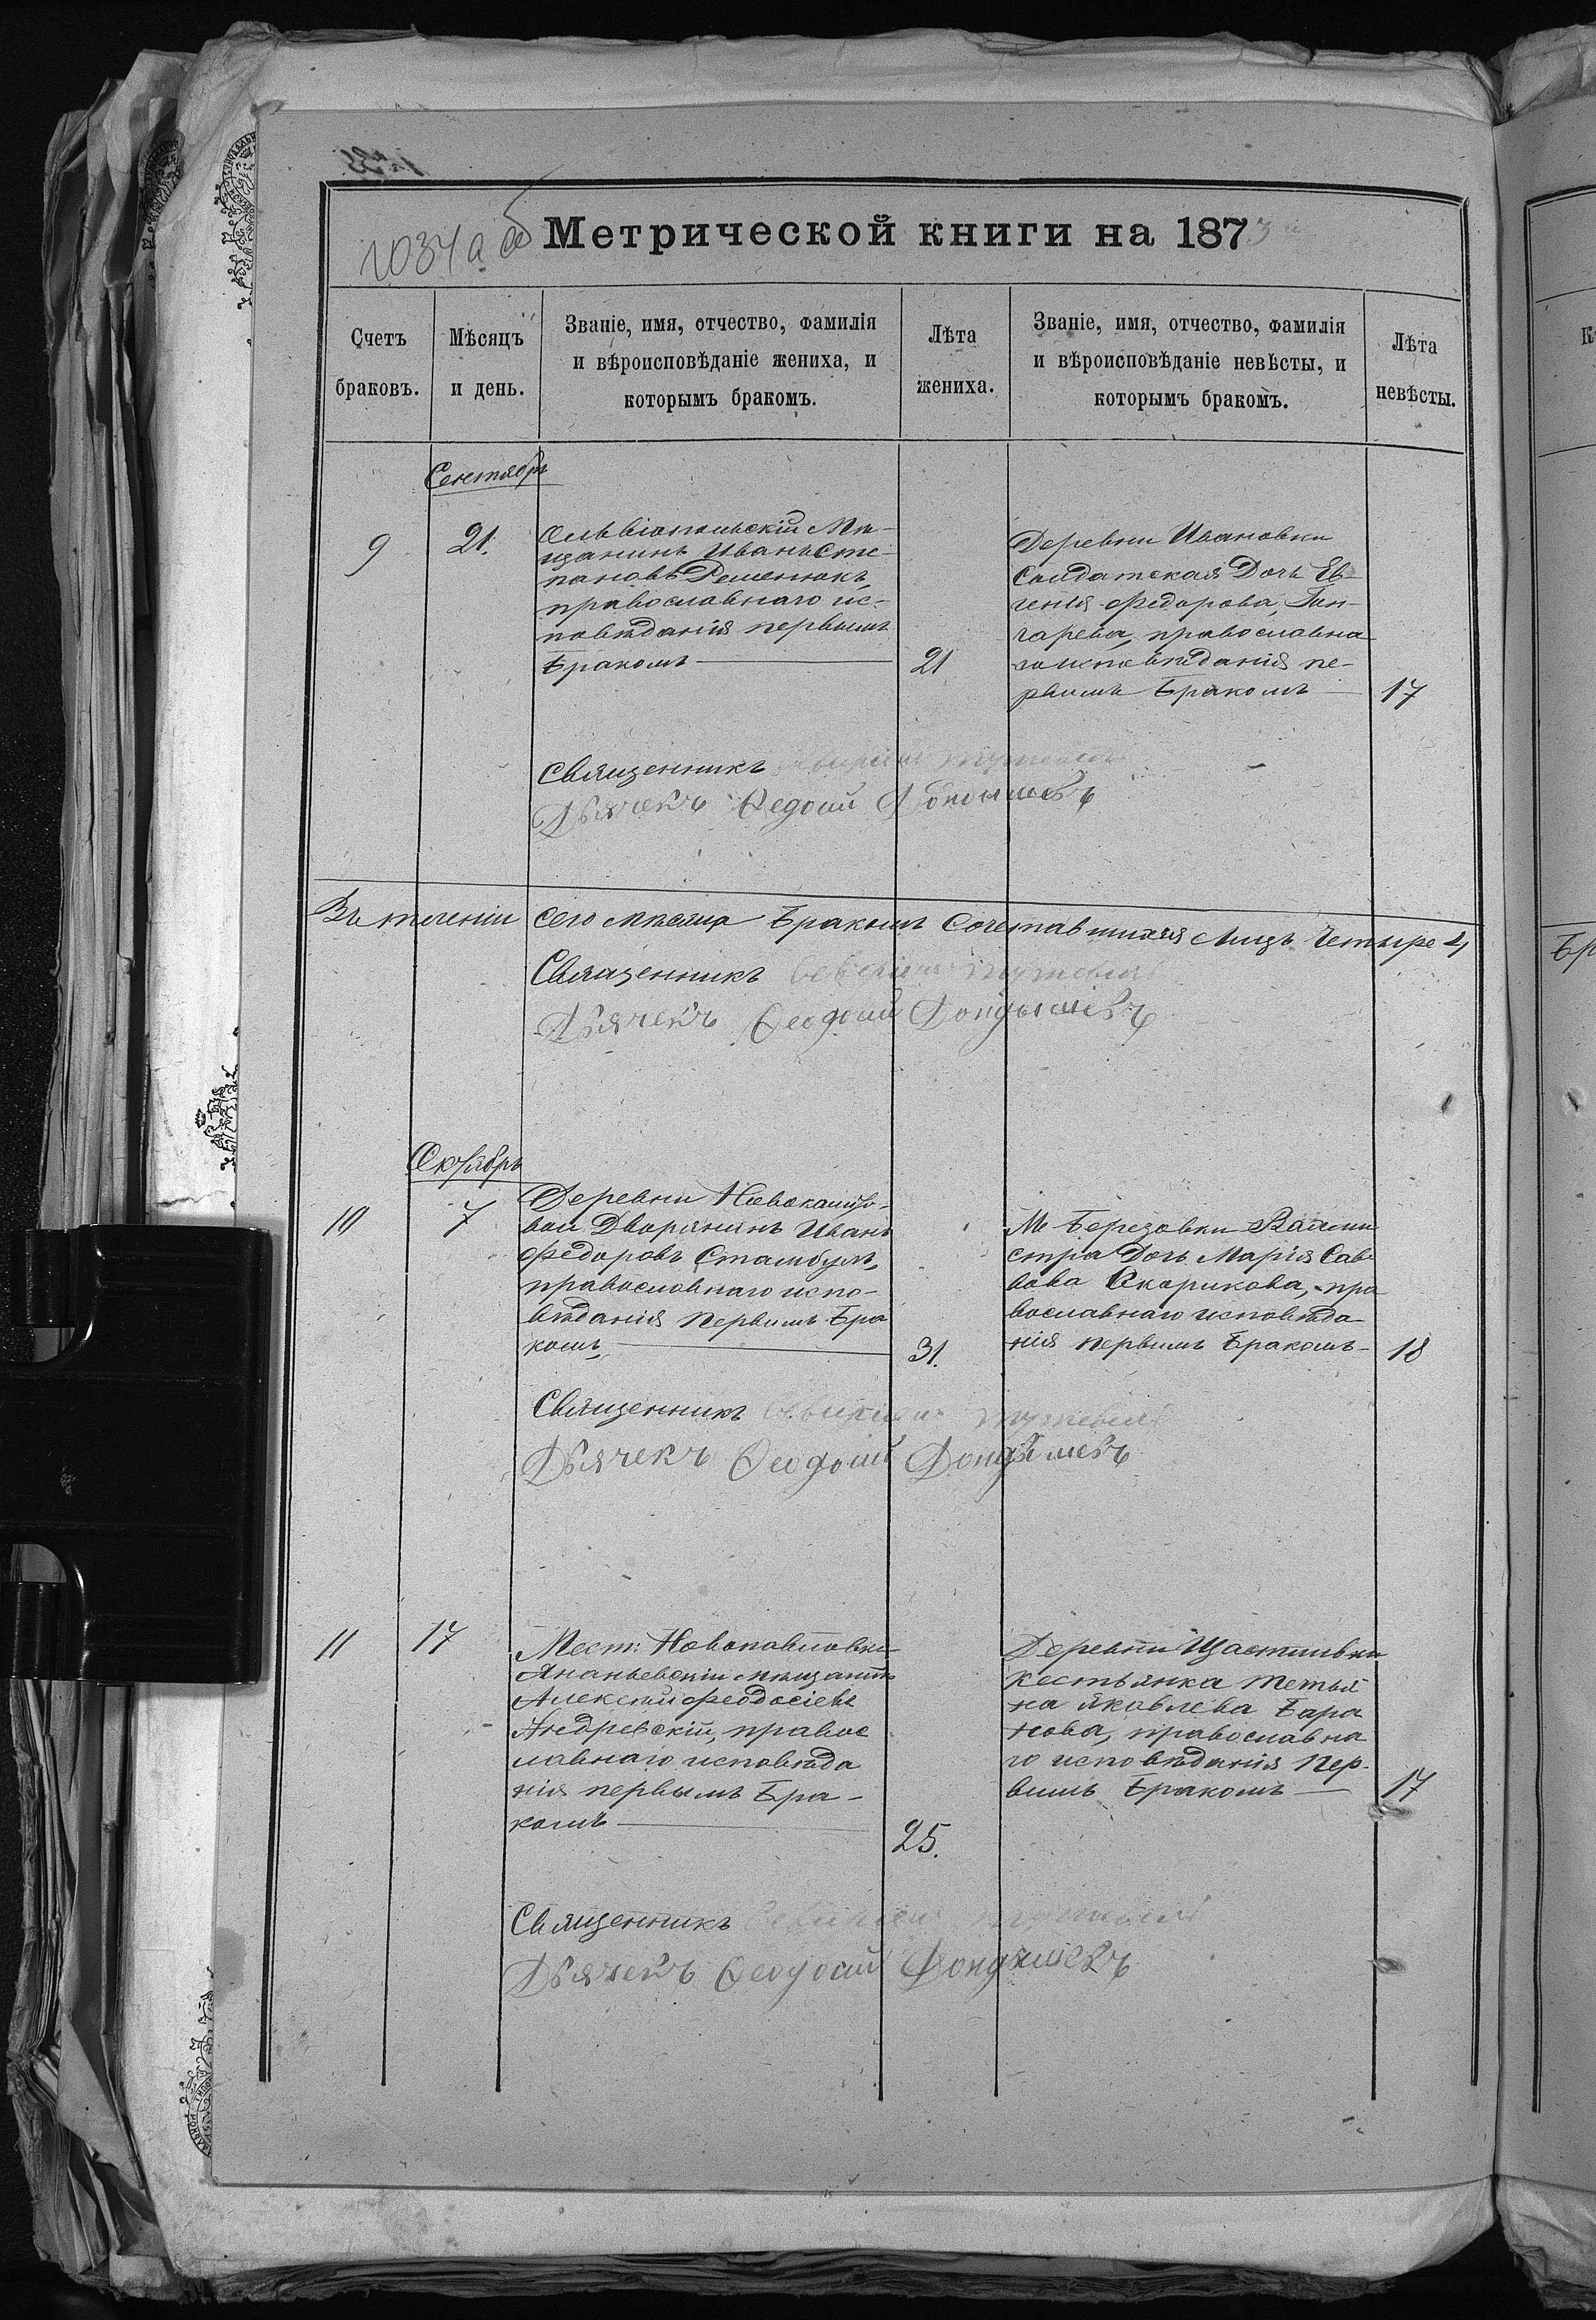 1034 а об
Метрической книги на 1873
Счетъ браковъ.
Мѣсяцъ и день.
Званіе, имя, отчество, фамилія
и вѣроисповѣданіе жениха, и
которымъ бракомъ.
Лѣта жениха.
Званіе, имя, отчество, фамилія
и вѣроисповѣданіе невѣсты, и
которымъ бракомъ.
Лѣта невѣсты.
Сентябрь
9
21.
Ольвіопольскій Мѣ-
щанинъ Иванъ Сте-
пановъ Семенюкъ,
православнаго ис-
повѣданія первымъ
Бракомъ
21
Деревни Ивановки
Солдатская Дочь Ев-
генія Федорова, Гон-
чарева, православна
го исповѣданія пе-
рвымъ Бракомъ
17
Священникъ
Дьячекъ Ѳеодосій
Въ теченіи сего мѣсяца Бракомъ Сочетавшихся Лицъ Четыре 4
Священникъ
Дьячекъ Ѳеодосій Дондышевъ
Октябрь
10
7
Деревни
вой Дворянинъ Иванъ
Федоровъ Стамбулъ,
православнаго испо-
вѣданія первымъ Бра
комъ,
31.
М Березовки
стра Дочь Марія Сав-
вова Скорикова, пра
вославнаго исповѣда-
нія первымъ Бракомъ
18
Священникъ
Дьячекъ Ѳеодосій Дондышевъ
11
17
Мест: Новопавловки
Ананьевскій мѣщанинъ
Алексѣй Феодосіевъ
Андревскій, правос
лавнаго исповѣда
нія первымъ Бра-
комъ
25.
Деревни Щастливки
Кестьянка Тетья
на Яковлева Бара
нова, православна
го исповѣданія Пер-
вымъ Бракомъ
17
Священникъ
Дьячекъ Ѳеодосій Дондышевъ